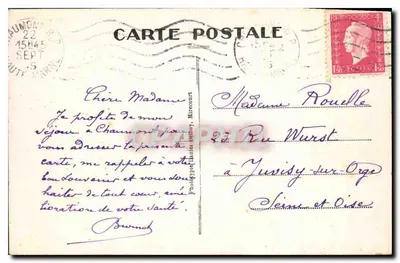 CARTE POSTALE
CHAUMONT
22
15H45
SEPT
HAUTE-MARNE
1F50
Chère Madame
Je profite de mon
séjour à Chaumont pour
vous adresser la présente
carte, me rappeler à votre
bon souvenir et vous sou-
haiter de tout cœur, amé-
lioration de votre santé.
Madame Rouelle
20 Rue Wurst
à Juvisy-sur-Orge
Seine et Oise